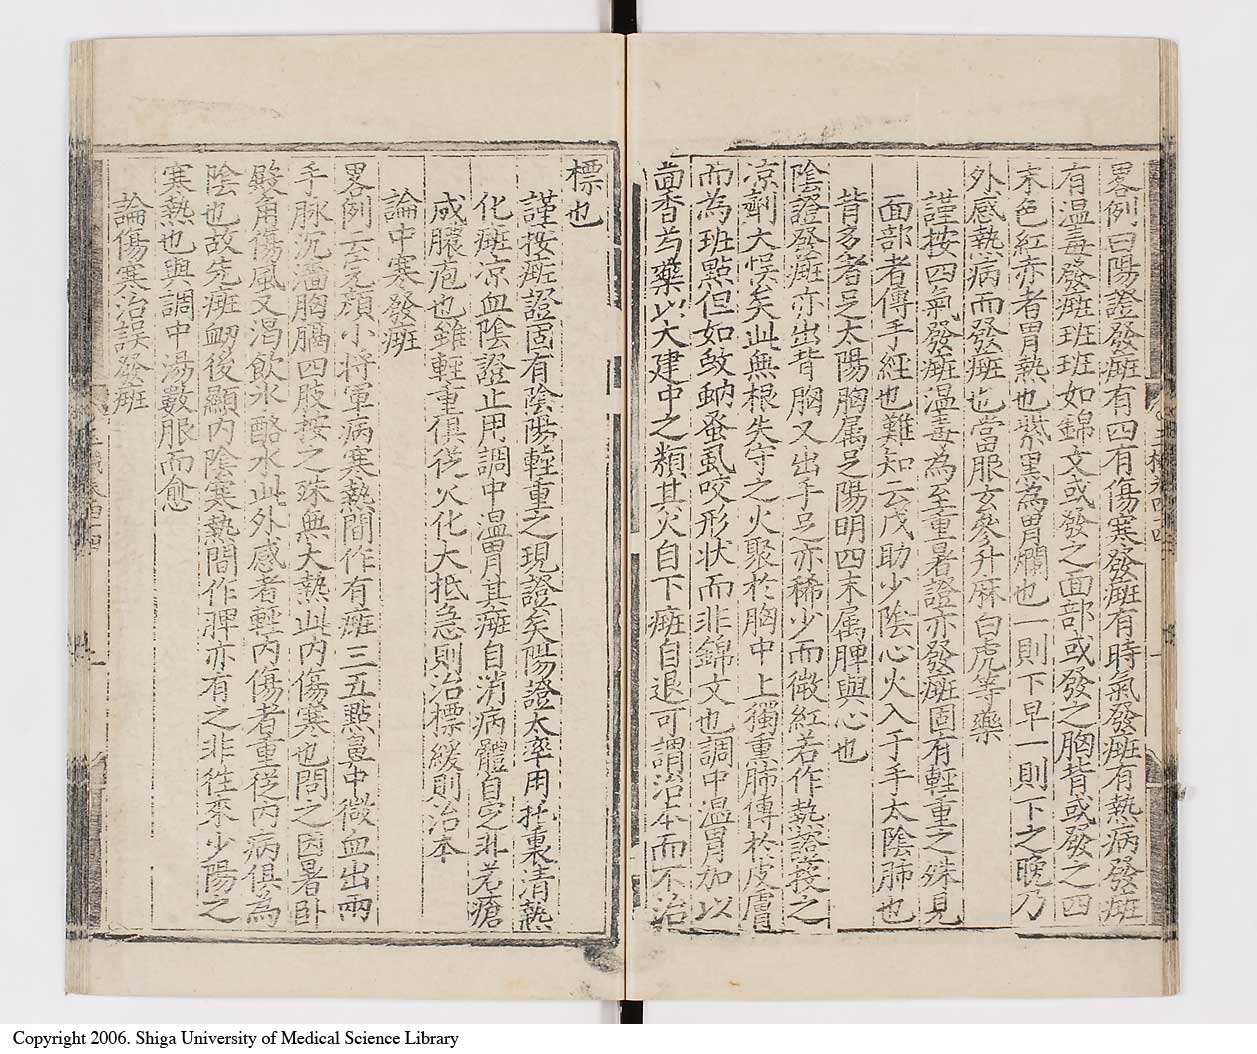 畧例曰陽證發斑有四有傷寒發斑有時氣發斑有熱病發斑
有温毒發斑斑斑如錦文或發之面部或發之胸背或發之四
末色紅赤者胃熱也紫黑為胃爛也一則下早一則下之晚乃
外感熱病而發斑也當服玄參升麻白虎等藥
謹按四氣發斑温毒為至重暑證亦發斑固有輕重之殊見
面部者傳手經也難知云戊助少陰心火入于手太陰肺也
背多者足太陽胸属足陽明四末属脾與心也
陰證發斑亦出背胸又出手足亦稀少而微紅若作熱證投之
凉劑大悮矣此無根失守之火聚於胸中上獨熏肺傳於皮膚
而為斑點但如蚊蚋蚤虱咬形状而非錦文也調中温胃加以
茴香芍藥以大建中之類其火自下斑自退可謂治本而不治
標也
謹按斑證固有陰陽輕重之現證矣陽證太率用托裏清熱
化斑凉血陰證止用調中温胃其斑自消病體自安非若瘡
成膿疱也雖輕重俱從火化大抵急則治標緩則治本
論中寒發斑
畧例云完顔小将軍病寒熱間作有斑三五點鼻中微血出兩
手脉沉濇胸膈四肢按之殊無大熱此内傷寒也問之因暑卧
殿角傷風又渴飲水酪水此外感者輕内傷者重從内病俱為
陰也故先斑衂後顯内陰寒熱間作脾亦有之非徃来少陽之
寒熱也與調中湯數服而愈
論傷寒治誤發斑
Copyright 2006. Shiga University of Medical Science Library